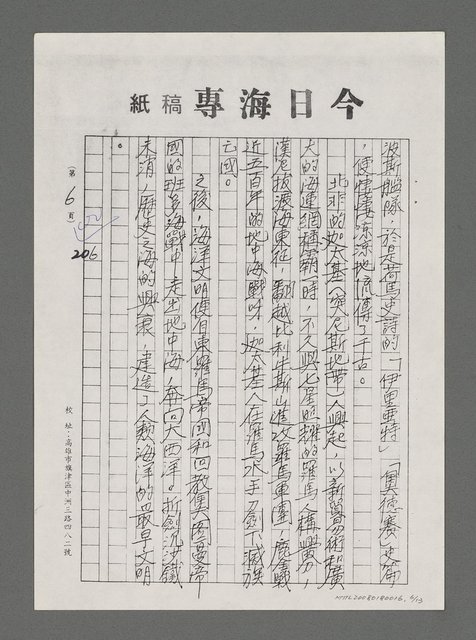 今日海專稿紙
波斯艦隊，於是荷馬史詩的「伊里亞特」「奧德賽」史篇
，便悽悽涼涼地流傳了千古。
北非的迦太基（突尼斯地帶）人興起，以新貿易術和廣
大的海運網稱霸一時，不久與七星照耀的羅馬人構釁，
漢尼拔渡海東征，翻越比利牛斯山進攻羅馬軍團，鏖戰
近五百年的地中海戰味，迦太基人在羅馬水手刀劍下滅族
亡國。
之後，海洋文明便自東羅馬帝國和回教奧圖曼帝
國的班多海戰中，走出地中海，奔向大西洋。折劍沉沙鐵
未消，歷史之海的興衰，建造了人類海洋的最早文明
。
（第6頁）
206
校址：高雄市旗津區中洲三路四八二號
NMTL20080180016, 6/13